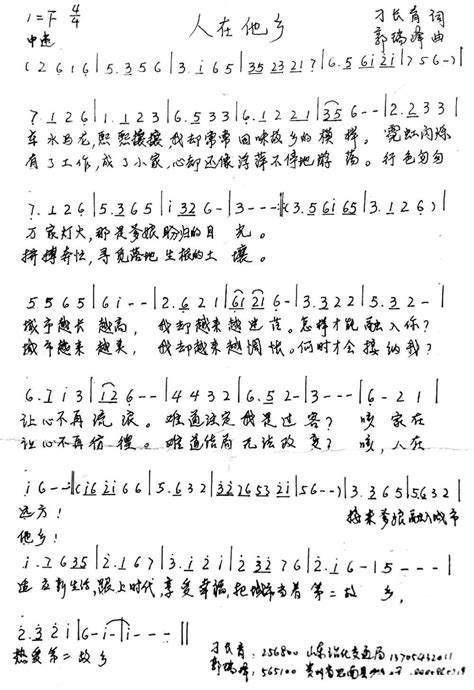 1=F 4/4 人在他乡 刁长育 词
中速 郭瑞峰 曲
(2 6 1 6 | 5. 3 5 6 | 3. 1 6 5 | 35 23 21 7 | 6. 5 61 21 | 7 5 6 - ) |
7. 1 2 6 | 1. 1 2 3 | 6. 5 3 3 | 6. 1 2 2 1 | 35 6 - - | 2. 2 3 3 |
车水马龙,熙熙攘攘,我却常常回味故乡的模样。霓虹闪烁
有了工作,成了小家,心却还像浮萍不停地游荡。行色匆匆
7. 1 2 6 | 5. 3 6 5 | i 32 6 - | 3 - - - :‖ (3. 5 61 65 | 3. 1 2 6 ) |
万家灯火,那是爹娘盼归的目光。
拼搏奔忙,寻觅落地生根的土壤。
5. 5 6 5 | 6 i - - | 2. 6 2 1 | 61 21 6 - | 3. 3 2 2 | 5. 3 2 - |
城市越长越高,我却越来越迷茫。怎样才能融入你?
城市越来越美,我却越来越惆怅。何时才会接纳我?
6. 1 i 3 | 12 6 - - | 4 4 3 2 | 6. 5 2 - | 3 - - - | 6 - 2 1 |
让心不再流浪。难道注定我是过客?咳 家在
让心不再彷徨。难道结局无法改变?咳,人在
i 6 - - :‖ (i6 12 i 6 6 | 5. 6 3 2 | 32 76 53 21 | 5 6 - - ) | 3. 3 6 5 | 5 6 3 2 |
远方! 接来爹娘融入城市
他乡!
i. 7 6 35 | 2. 1 6 7 | 3. i 2 i | 2 32 7 6 | 2. i 6 - | 5 - - - |
适应新生活,跟上时代,享受幸福,把城市当着第二故乡,
2. 3 2 i | 6 - i - | i - - - ‖
热爱第二故乡 刁长育:256800 山东沾化交通局
郭瑞峰:565100